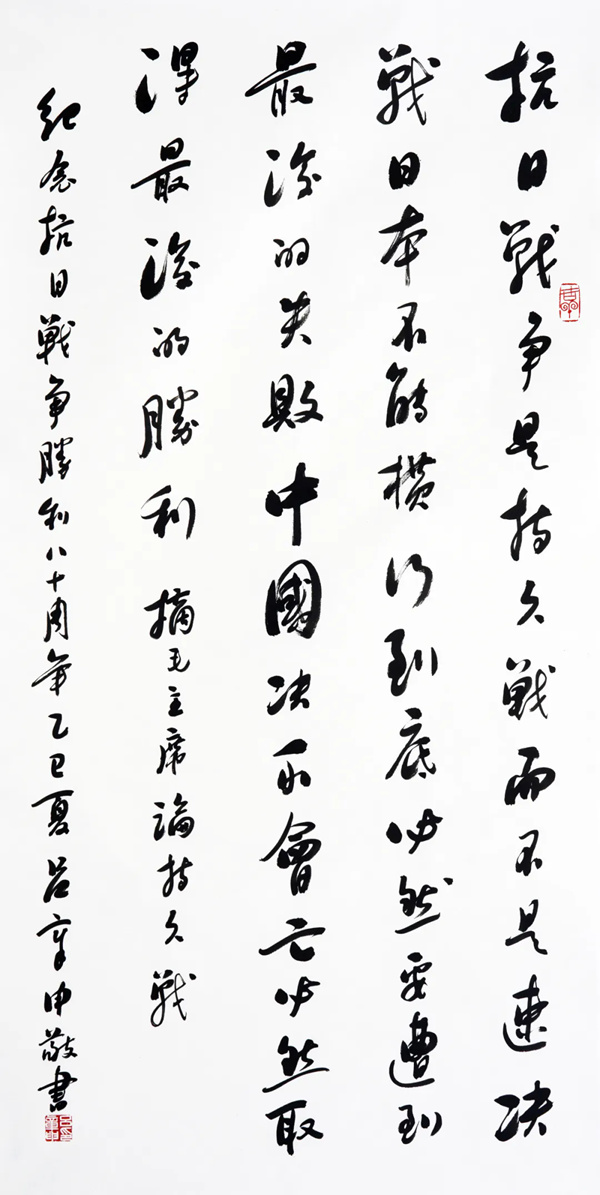 抗日戰争是持久戰而不是速决
戰日本不能横行到底必然要遭到
最後的失敗中國决不會亡必然取
得最後的勝利 摘毛主席論持久戰
紀念抗日戰争勝利八十周年乙巳夏吕章申敬書